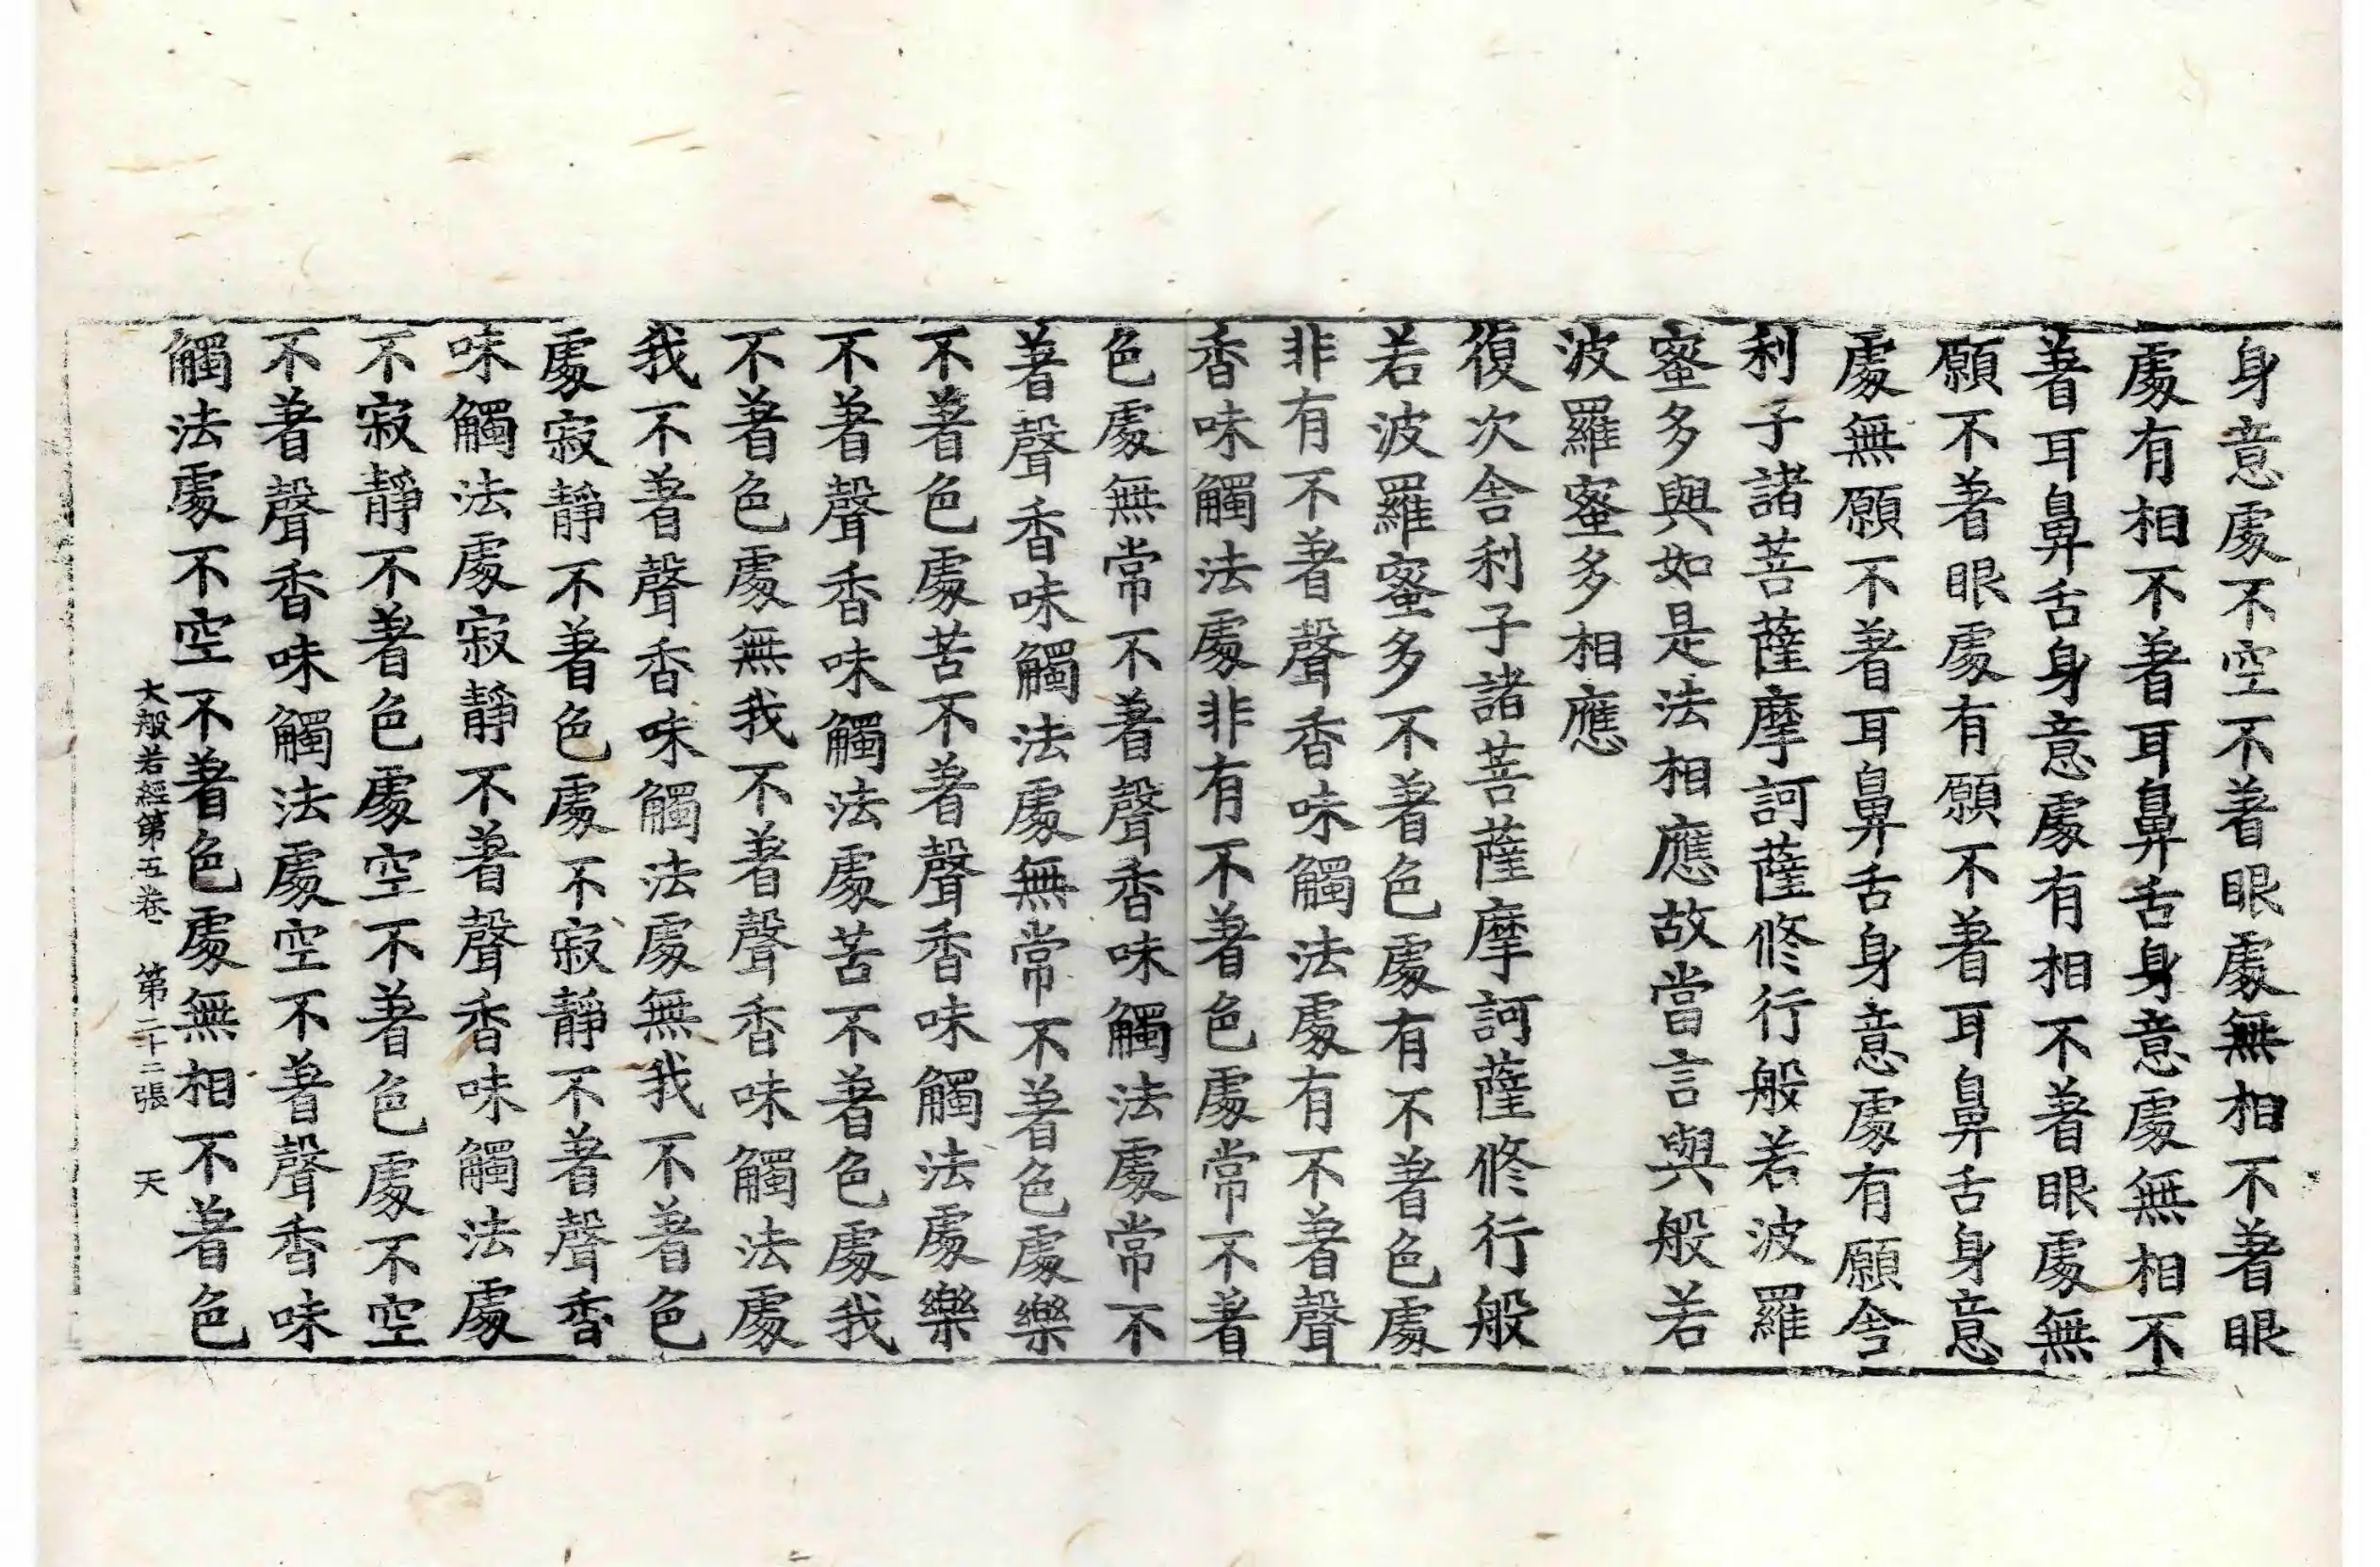 身意處不空不著眼處無相不著眼
處有相不著耳鼻舌身意處無相不
著耳鼻舌身意處有相不著眼處無
願不著眼處有願不著耳鼻舌身意
處無願不著耳鼻舌身意處有願舍
利子諸菩薩摩訶薩修行般若波羅
蜜多與如是法相應故當言與般若
波羅蜜多相應
復次舍利子諸菩薩摩訶薩修行般
若波羅蜜多不著色處有不著色處
非有不著聲香味觸法處有不著聲
香味觸法處非有不著色處常不著
色處無常不著聲香味觸法處常不
著聲香味觸法處無常不著色處樂
不著色處苦不著聲香味觸法處樂
不著聲香味觸法處苦不著色處我
不著色處無我不著聲香味觸法處
我不著聲香味觸法處無我不著色
處寂靜不著色處不寂靜不著聲香
味觸法處寂靜不著聲香味觸法處
不寂靜不著色處空不著色處不空
不著聲香味觸法處空不著聲香味
觸法處不空不著色處無相不著色
大般若經第五卷 第二十二張 天